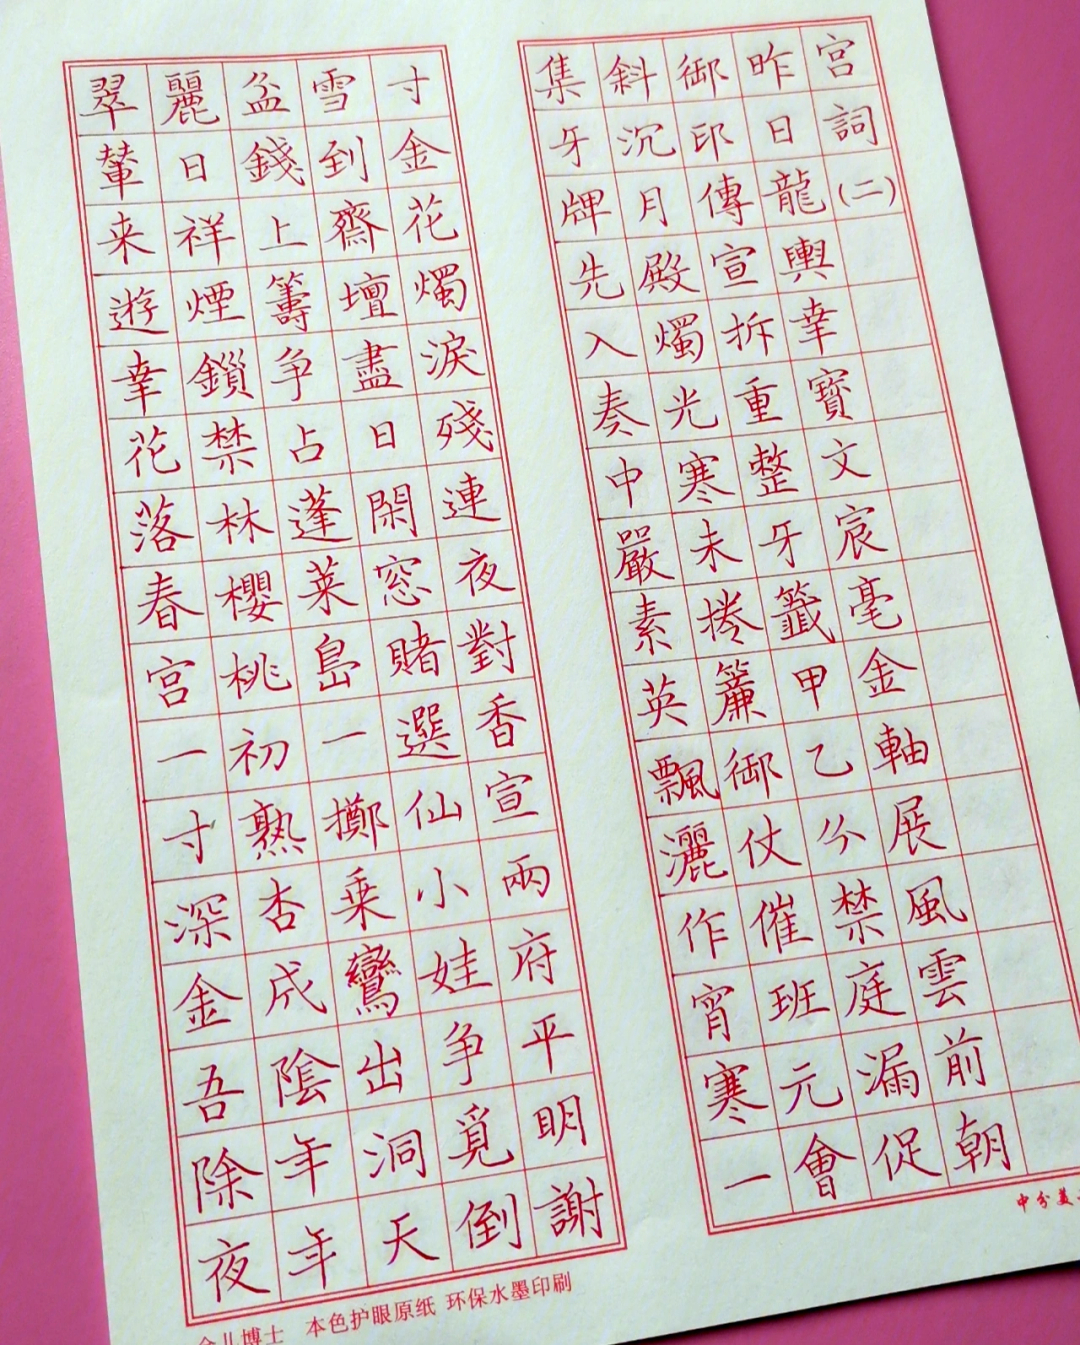 宮詞(二)
昨日龍輿幸寶文宸毫金軸展風雲前朝
御印傳宣拆重整牙籤甲乙分禁庭漏促
斜沉月殿燭光寒未捲簾御仗催班元會
集牙牌先入奏中嚴素英飄灑作宵寒一
寸金花燭淚殘連夜對香宣兩府平明謝
雪到齋壇盡日閑窓賭選仙小娃争覓倒
盆錢上籌争占蓬萊島一擲乗鸞出洞天
麗日祥煙鎖禁林櫻桃初熟杏成陰年年
翠輦来遊幸花落春宮一寸深金吾除夜
博士 本色护眼原纸 环保水墨印刷